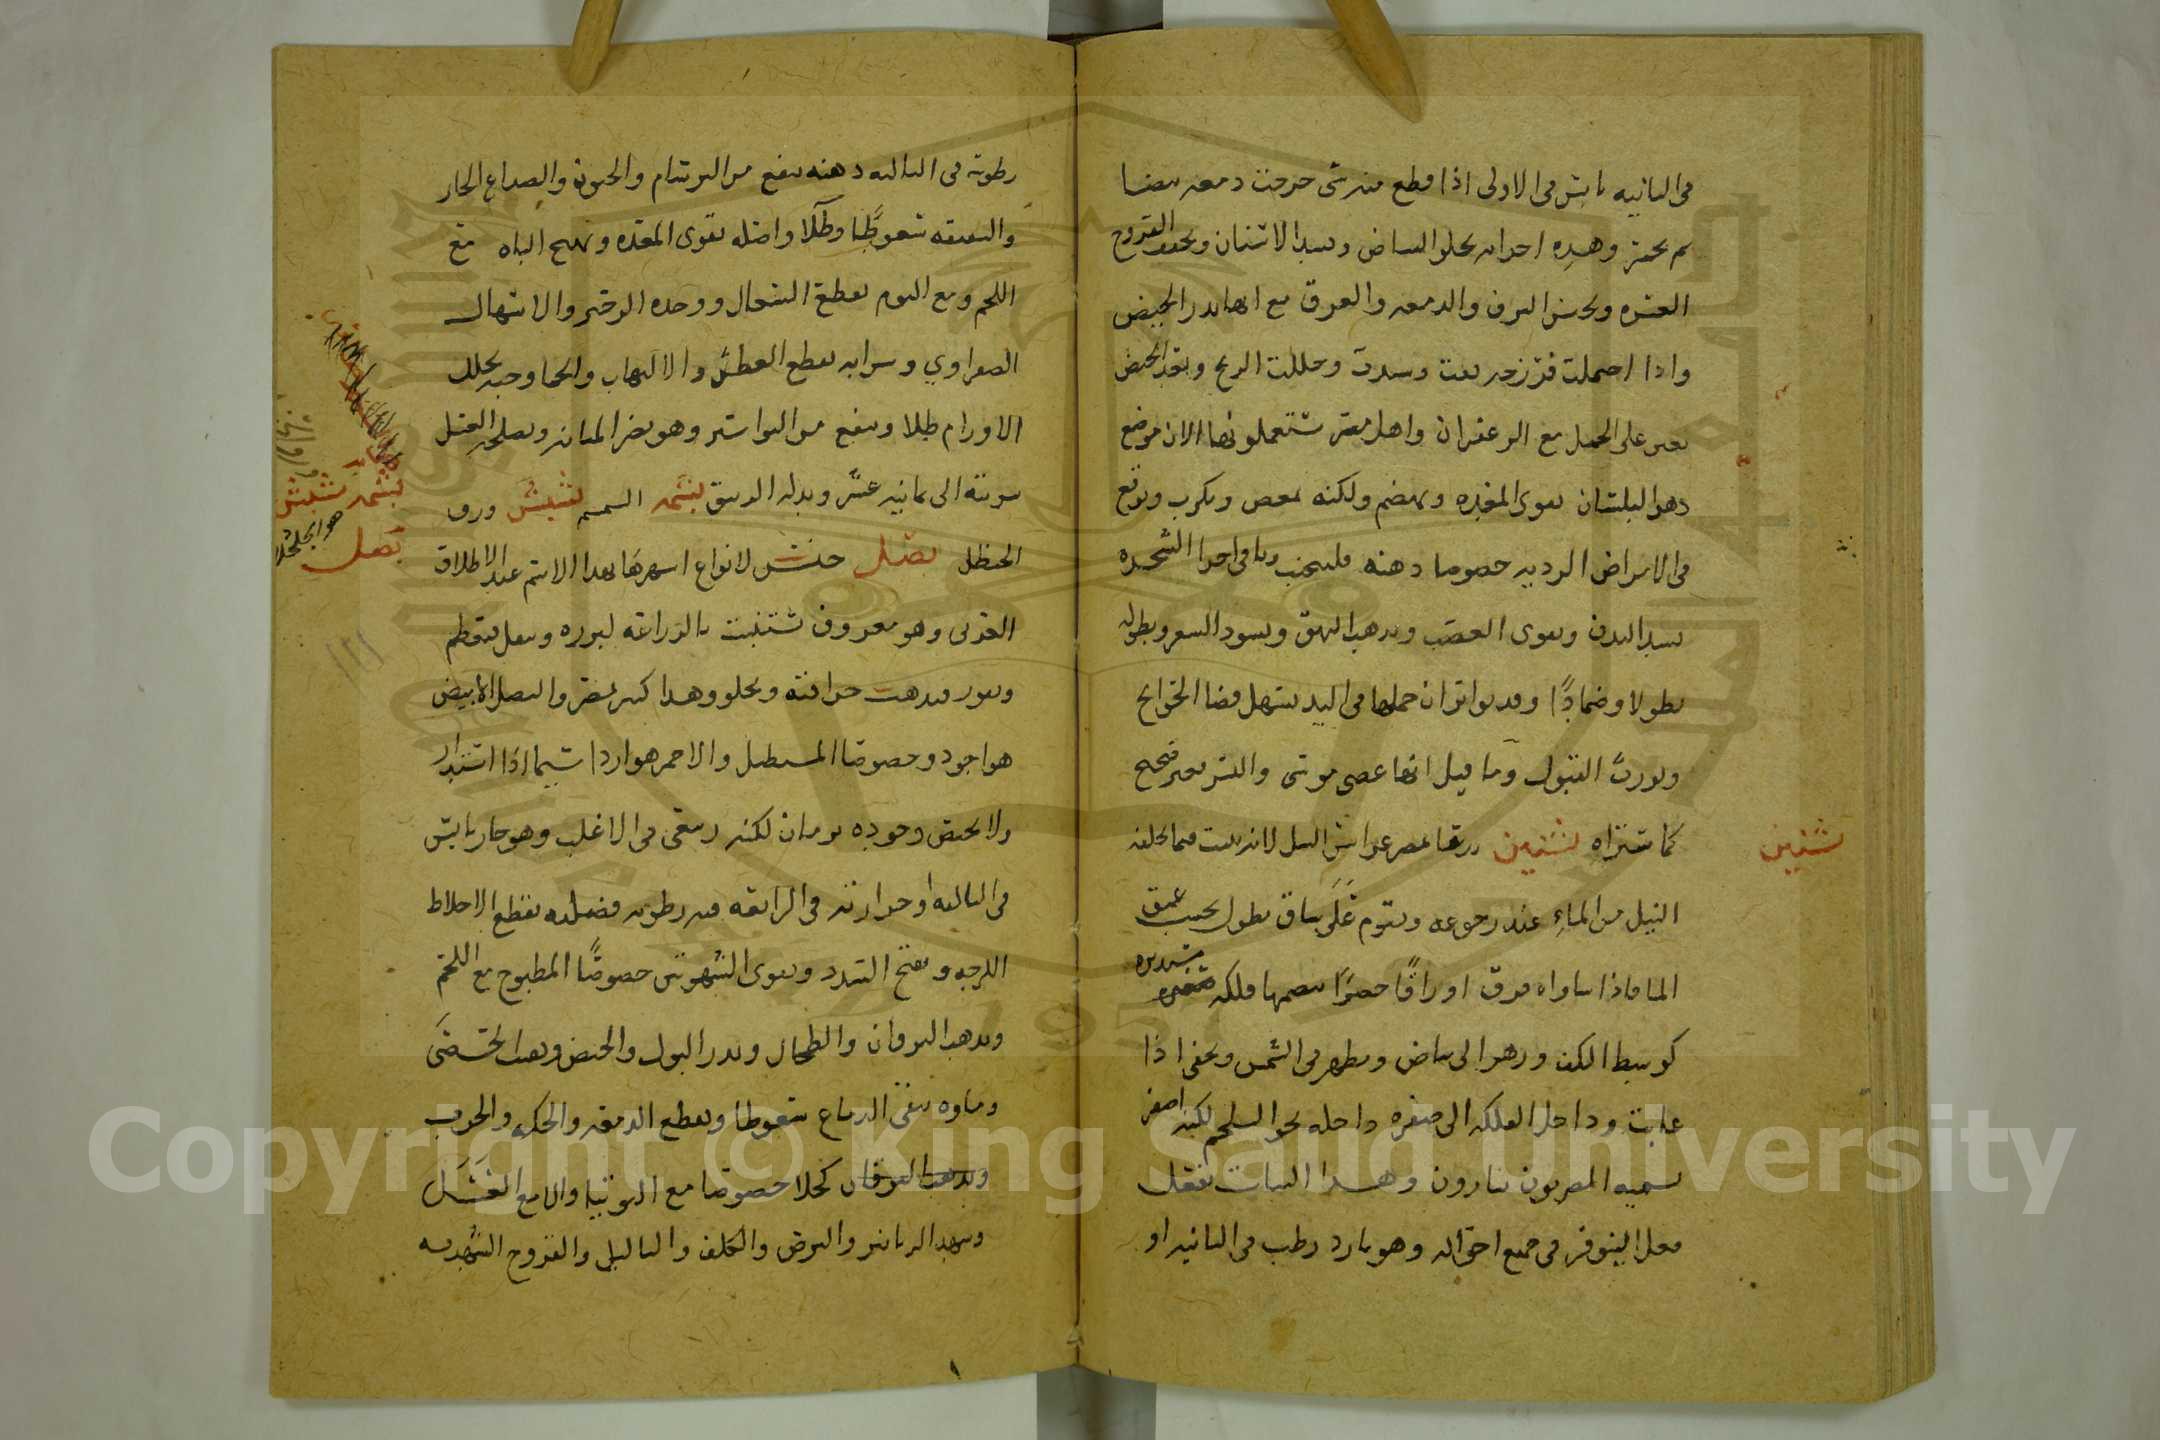 في الثانيه يابس في الاولى اذا قطع منه شي خرجت دمعه بيضا
ثم تحمر وهذه اجزايه تجلو البياض وتشد الاسنان وتجفف القروح
العسره وتحبس النزف والدمعه والعرق مع انها تدر الحيض
واذا احتملت فرزجه نقت وشدت وحللت الريح وبعد الحيض
تعين على الحمل مع الزعفران واهل مصر يستعملونها الان موضع
دهن البلسان تقوى المعده وتهضم ولكنه تمغص وتكرب وتوقع
في الامراض الرديه خصوصا دهنه فليجتنب وباقي اجزا الشجره
تشد البدن وتقوى العصب وتذهب البهق وتسود الشعر وتطوله
نطولا وضمادا وقد تواتر ان حملها في اليد يسهل قضا الحوايج
ويورث القبول وما قيل انها عصى موسى والنسر غير صحيح
كما ستراه بشنين يدعى بمصر عرايس النيل لانه ينبت فيما يخلفه
النيل من الماء عند رجوعه ويقوم على ساق تطول بحسب عمق
الما فاذا ساواه فرق اوراقا خضرا تنضمها فلكه مستديره
كوسط الكف وزهر الى بياض ويظهر في الشمس ويخفى اذا
غابت وداخل الفلكه الى صفره داخله نحو السلجم لكنه اصفر
يسميه المصريون بيارون وهذا النبات يفعل
فعل النينوفر في جميع احواله وهو بارد رطب في الثانيه او
بشنين
رطوبته في الثالثه دهنه ينفع من البرسام والجنون والصداع الحار
والشقيقه سعوطا وطلا واصله يقوى المعده ويهيج الباه مع
اللحم ومع الثوم يقطع السعال ووحده الزحير والاسهال
الصفراوي وشرابه يقطع العطش والالتهاب والحما وحبه يحلل
الاورام طلا وينفع من البواسير وهو يضر المثانه ويصلحه العسل
شربته الى ثمانيه عشر وبدله الزنبق بشمه السمسم بشبش ورق
الحنظل بصل جنس لانواع اشهرها بهذا الاسم عند الاطلاق
العربى وهو معروف يستنبت بالزراعه لبزره وينقل فيعظم
ويدور فيذهب حرافته ويحلو وهذا كثير بمصر والبصل الابيض
هو اجود وخصوصا المستطيل والاحمر هو اردا سيما اذا استدار
ولا يختص وجوده بزمان لكنه ربيعى في الاغلب وهو حار يابس
في الثالثه او حرارته في الرابعه فيه رطوبه فضليه يقطع الاخلاط
اللزجه ويفتح السدد ويقوى الشهوتين خصوصا المطبوخ مع اللحم
ويذهب اليرقان والطحال ويدر البول والحيض ويفتت الحصى
وماوه ينقى الدماغ سعوطا ويقطع الدمعه والحكه والجرب
كحلا خصوصا مع التوتيا والامع العسل
والبرص والكلف والثاليل والقروح الشهديه
بشمه بشبش
بصل
Copyright © King Saud University
1957